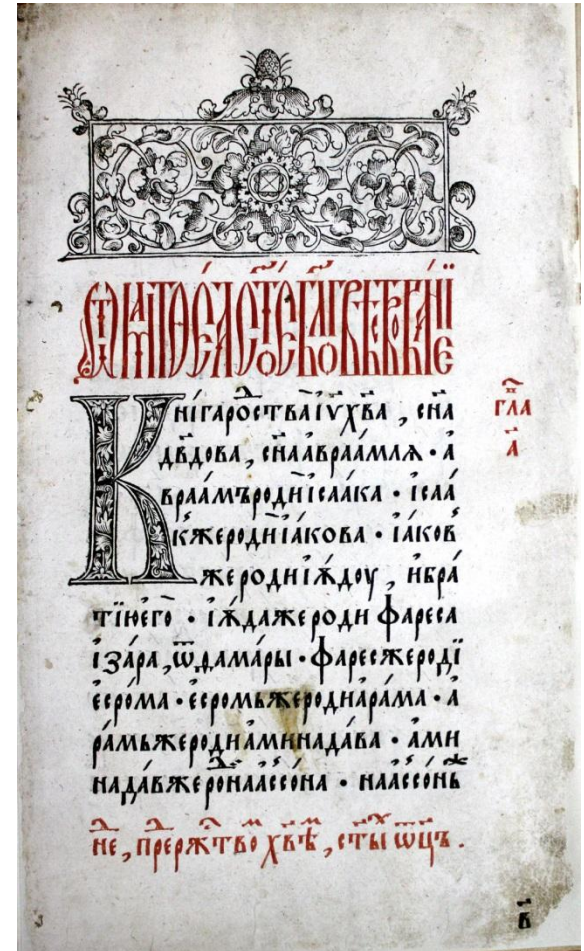 Кни́га ро́ства і҃у х҃ва, сн҃а
дв҃дова, сн҃а авраа́мля · а
враа́мъ роди̑ ісаа́ка · ісаа́
к же роди̑ іа́кова · іа́ков
же роди̑ ію́дꙋ, и҆ бра́
тїю є҆го̀ · і҆ю́да же роди фареса
і҆ за́ра, ѿ дама́ры · фарес же роді
есро́ма · есромь же роди ара́ма · а
ра́мь же роди амінада́ва · ами
нада́в же ро наассо́на · наассо́нь
гла
а
не, пре рѫ҃тво хв҃ѣ, ст҃ы ѿц҃ъ.
в